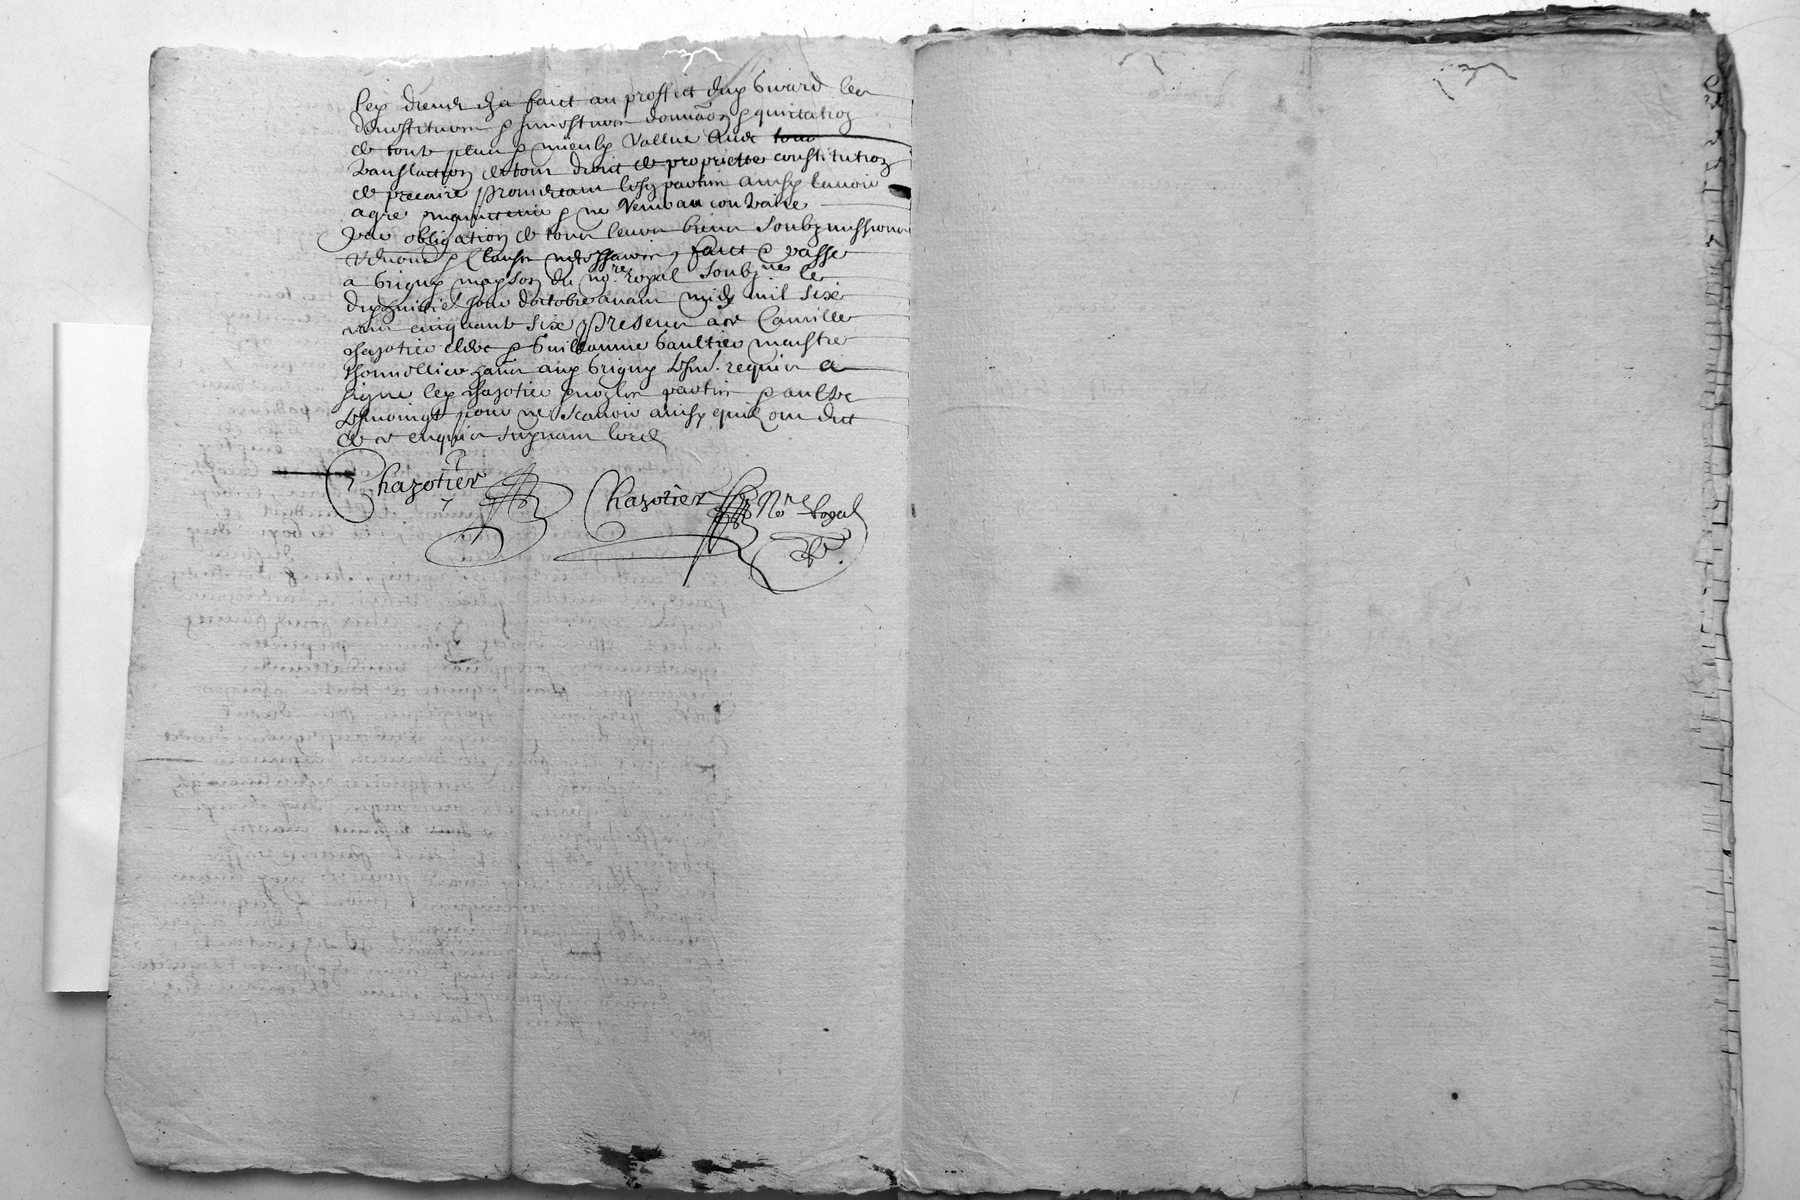 faict au proffict dud Girard les
devestitures & investitures donnaôn & quictation
de toute plus & mieulx vallue avec tous
translaction de tout droict de propriette constitution
de precaire promectant lesd parties ainsy lavoir
agre & ne venir au contraire
par obligation de tous leurs biens soubzmissions
& clauses necessaires, faict & passé
a Grigny mayson du no.re royal soubz.ne le
dixhuictie jour doctobre avant midy mil six
cens cinquante six presens a ce Camille
chazotier clerc & Guillaume Gaultier maistre
thonnellier dud Grigny tesm. requis a
signe led chazotier & non les parties & aultre
tesmoingt pour ne scavoir ainsy quilz ont dict
de ce enquis suyvant lord
Chazotier
Chazotier No.re Royal